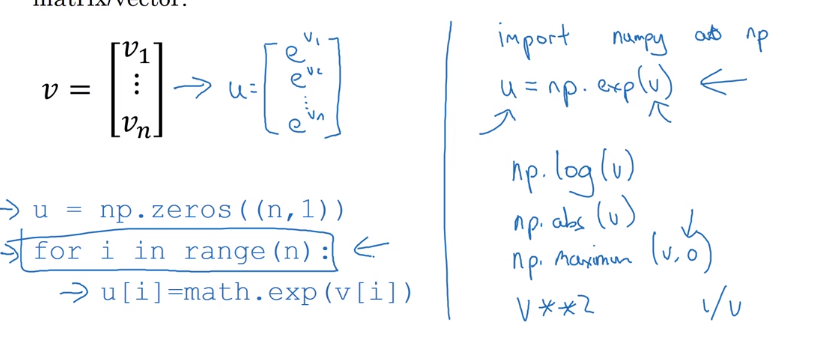 matrix/vector.
v = [v1 ⋮ vn] → u = [e^v1 e^v2 ⋮ e^vn]
→ u = np.zeros((n,1))
→ for i in range(n): ←
→ u[i]=math.exp(v[i])
import numpy as np
u = np.exp(v) ←
np.log(v)
np.abs(v)
np.maximum(v,0)
v**2 1/v